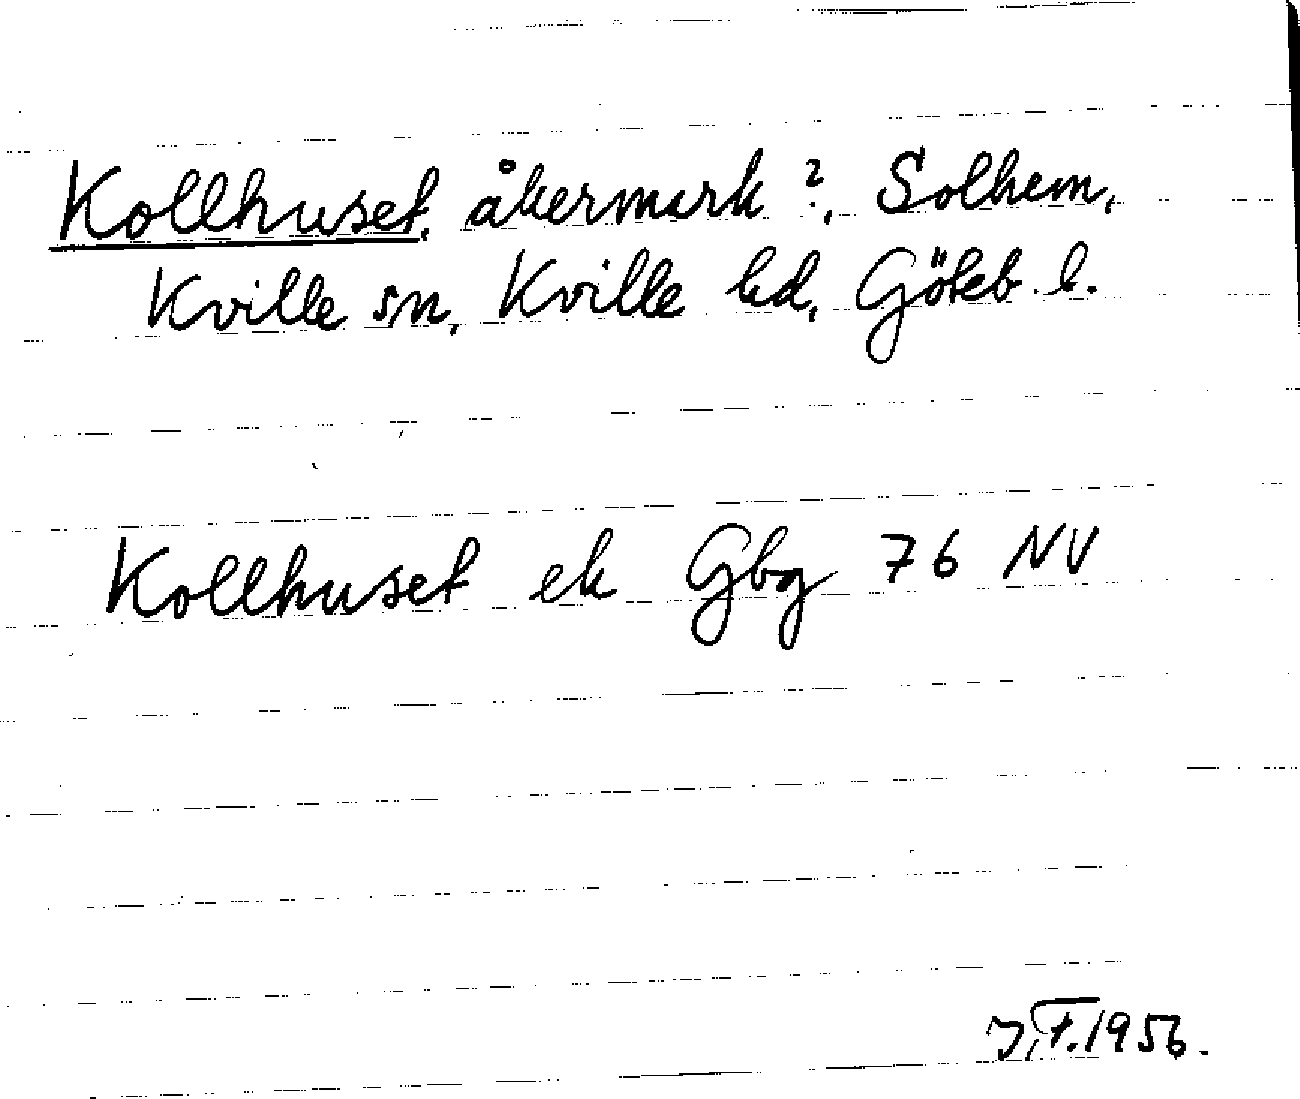 Kollhuset, åkermark?, Solhem,
Kville sn, Kville hd, Göteb. l.
Kollhuset ek Gbg 76 NV
J.F. 1956.